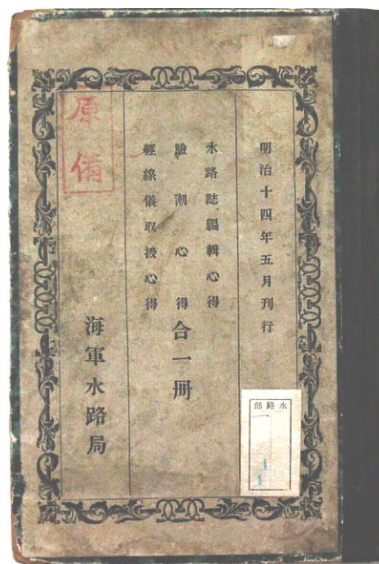 明治十四年五月刊行
水路誌編輯心得
驗潮心得
經線儀取扱心得
合一冊
海軍水路局
原備
水路部
一
1
1